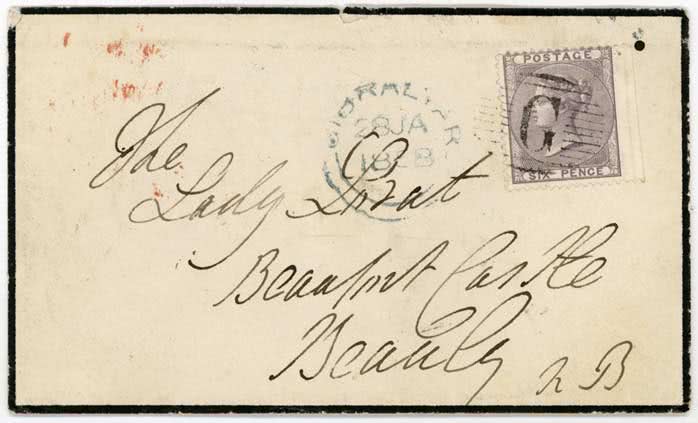 GIBRALTAR
28 JA
1858
POSTAGE
G
SIX PENCE
The
Lady Lovat
Beaufort Castle
Beauly
N B